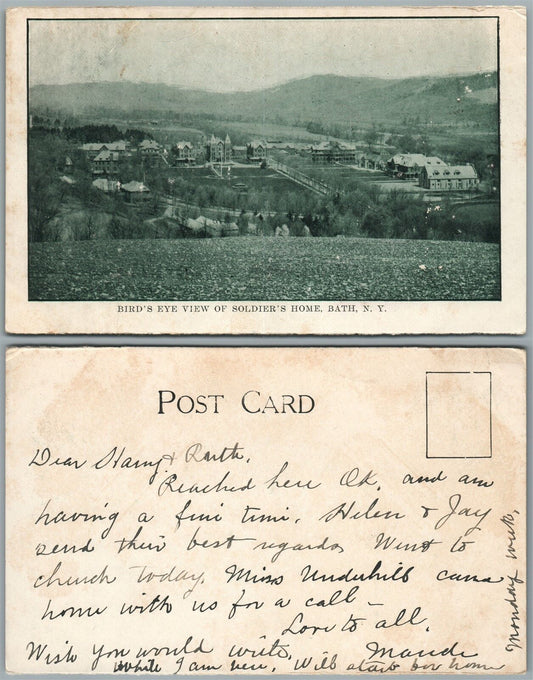 BIRD'S EYE VIEW OF SOLDIER'S HOME, BATH, N. Y.
POST CARD
Dear Harry & Ruth,
Reached here OK, and am
having a fine time. Helen & Jay
send their best regards. Went to
church today. Miss Underhill came
home with us for a call –
Love to all,
Maude
Wish you would write,
while I am here, Will start for home
Monday week,